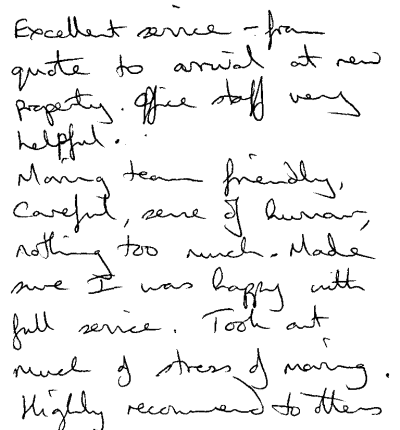 Excellent service - from
quote to arrival at new
property. Office staff very
helpful.
Moving team friendly,
Careful, sense of humour,
nothing too much. Made
sure I was happy with
full service. Took out
much of stress of moving.
Highly recommend to others